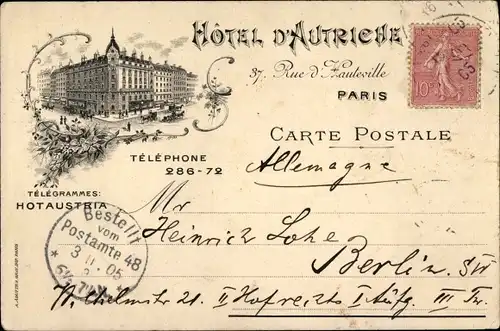 HÔTEL D'AUTRICHE
37, Rue d'Hauteville
PARIS
10
CARTE POSTALE
TÉLÉPHONE
286-72
Allemagne
TÉLÉGRAMMES:
HOTAUSTRIA
Bestellt
vom
Postamte 48
3 05
Mr
Heinrich Lohe
Berlin SW
21 II Hofrechts I Aufg. III Tr.